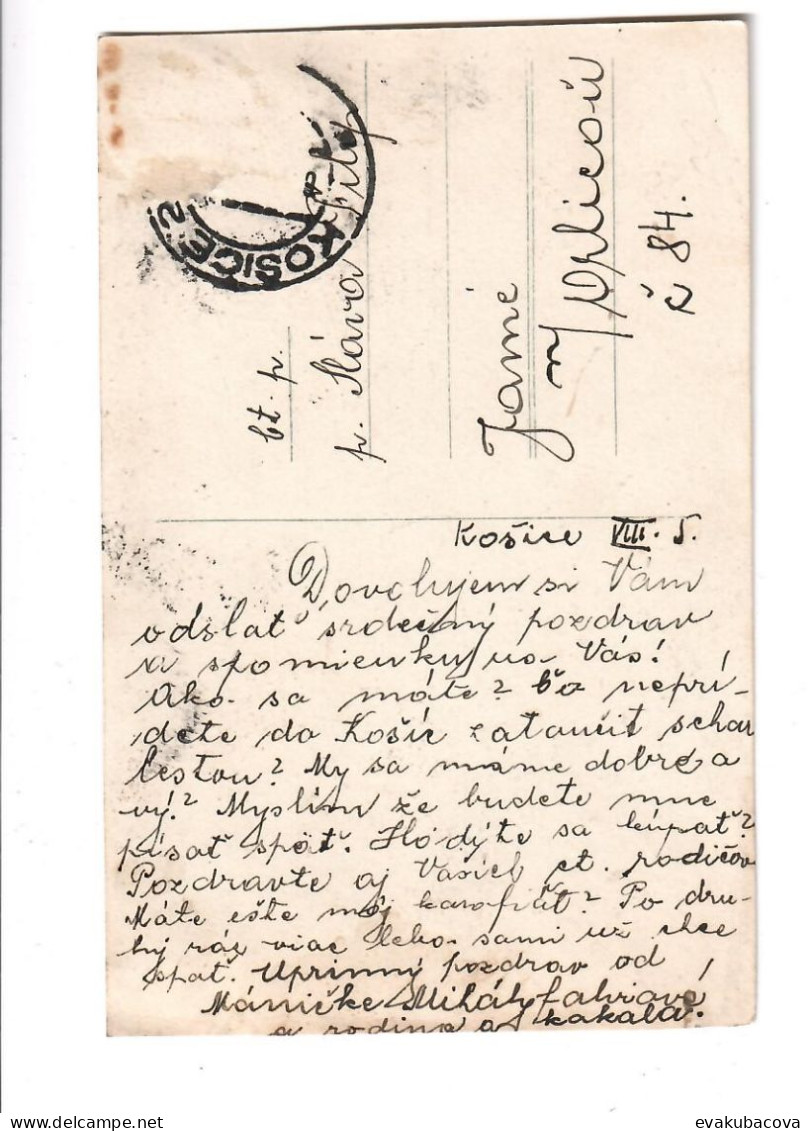 KOŠICE 2
bt. p.
p. Sláva Filip
Jamné
n/Orlicou
č 84.
Košice VIII. 5.
Dovolujem si Vám
odslať srdečný pozdrav
a spomienku na Vás!
Ako sa máte? Čo neprí-
dete do Košíc zatančit schar
lestou? My sa máme dobre a
vý? Myslím že budete mne
písať späť. Hódýte sa kúpať?
Pozdravte aj Vašich ct. rodičov
Máte ešte mój karafiát? Po dru-
hý ráz viac lebo sami už chce
spať. Uprimný pozdrav od
Máničke Mihály
a rodina
evakubacova